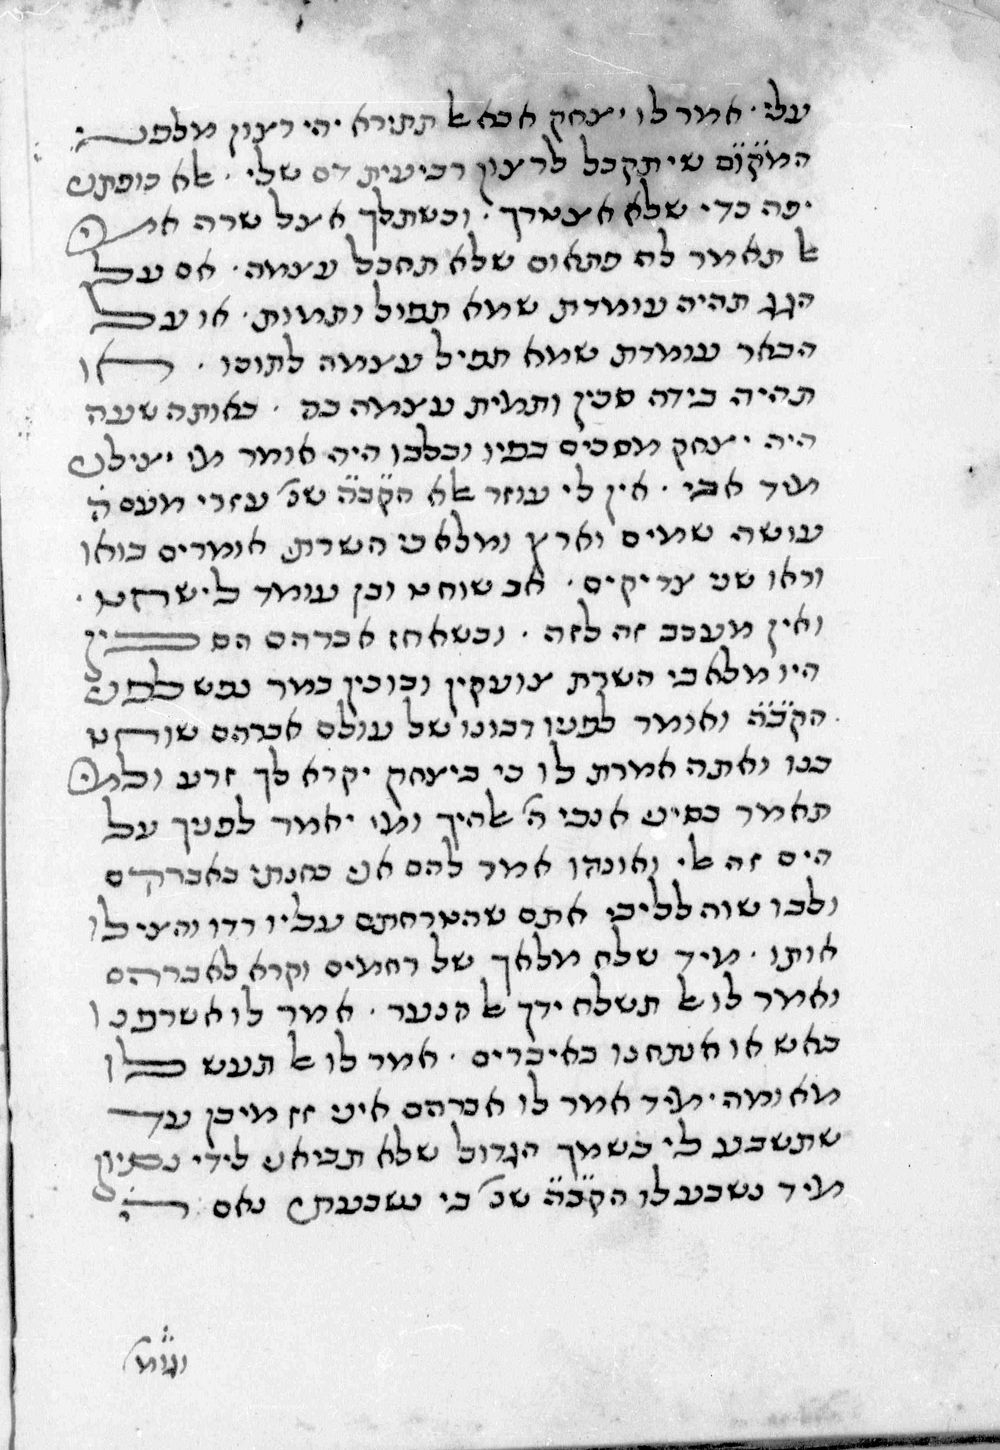 עלי. אמר לו יצחק אבא אל תתירא יהי רצון מלפני
המקום שיתקבל לרצון רביעית דם שלי. אלא כופתני
יפה כדי שלא אצטרך. וכשתלך אצל שרה אמי
אל תאמר לה פתאום שלא תחבל עצמה. אם על
הגג תהיה עומדת שמא תפול ותמות. או על
הבאר עומדת שמא תפיל עצמה לתוכו. או
תהיה בידה סכין ותמית עצמה בה. באותה שעה
היה יצחק מסכים בפיו ובלבו היה אומר מי יצילני
מיד אבי. אין לי עוזר אלא הקב״ה שנ׳ עזרי מעם ה׳
עושה שמים וארץ ומלאכי השרת אומרים בואו
וראו שני צדיקים. אב שוחט ובן עומד לישחט.
ואין מעכב זה לזה. וכשאחז אברהם הסכין
היו מלאכי השרת צועקין ובוכין במר נפש לפני
הקב״ה ואומר לפניו רבונו של עולם אברהם שוחט
בנו ואתה אמרת לו כי ביצחק יקרא לך זרע ולמי
תאמר בסיני אנכי ה׳ אלהיך ומי יאמר לפניך על
הים זה אלי ואנוהו אמר להם אני בחנתי באברהם
ולבו שוה לליבי אתם שהטרחתם עליו רדו והצילו
אותו. מיד שלח מלאך של רחמים וקרא לאברהם
ואמר לו אל תשלח ידך אל הנער. אמר לו אשרפנו
באש או אנתחנו באיברים. אמר לו אל תעש לו
מאומה. מיד אמר לו אברהם איני זז מיכן עד
שתשבע לי בשמך הגדול שלא תביאני לידי נסיון
מיד נשבע לו הקב״ה שנ׳ בי נשבעתי נאם ה׳
וגומ׳